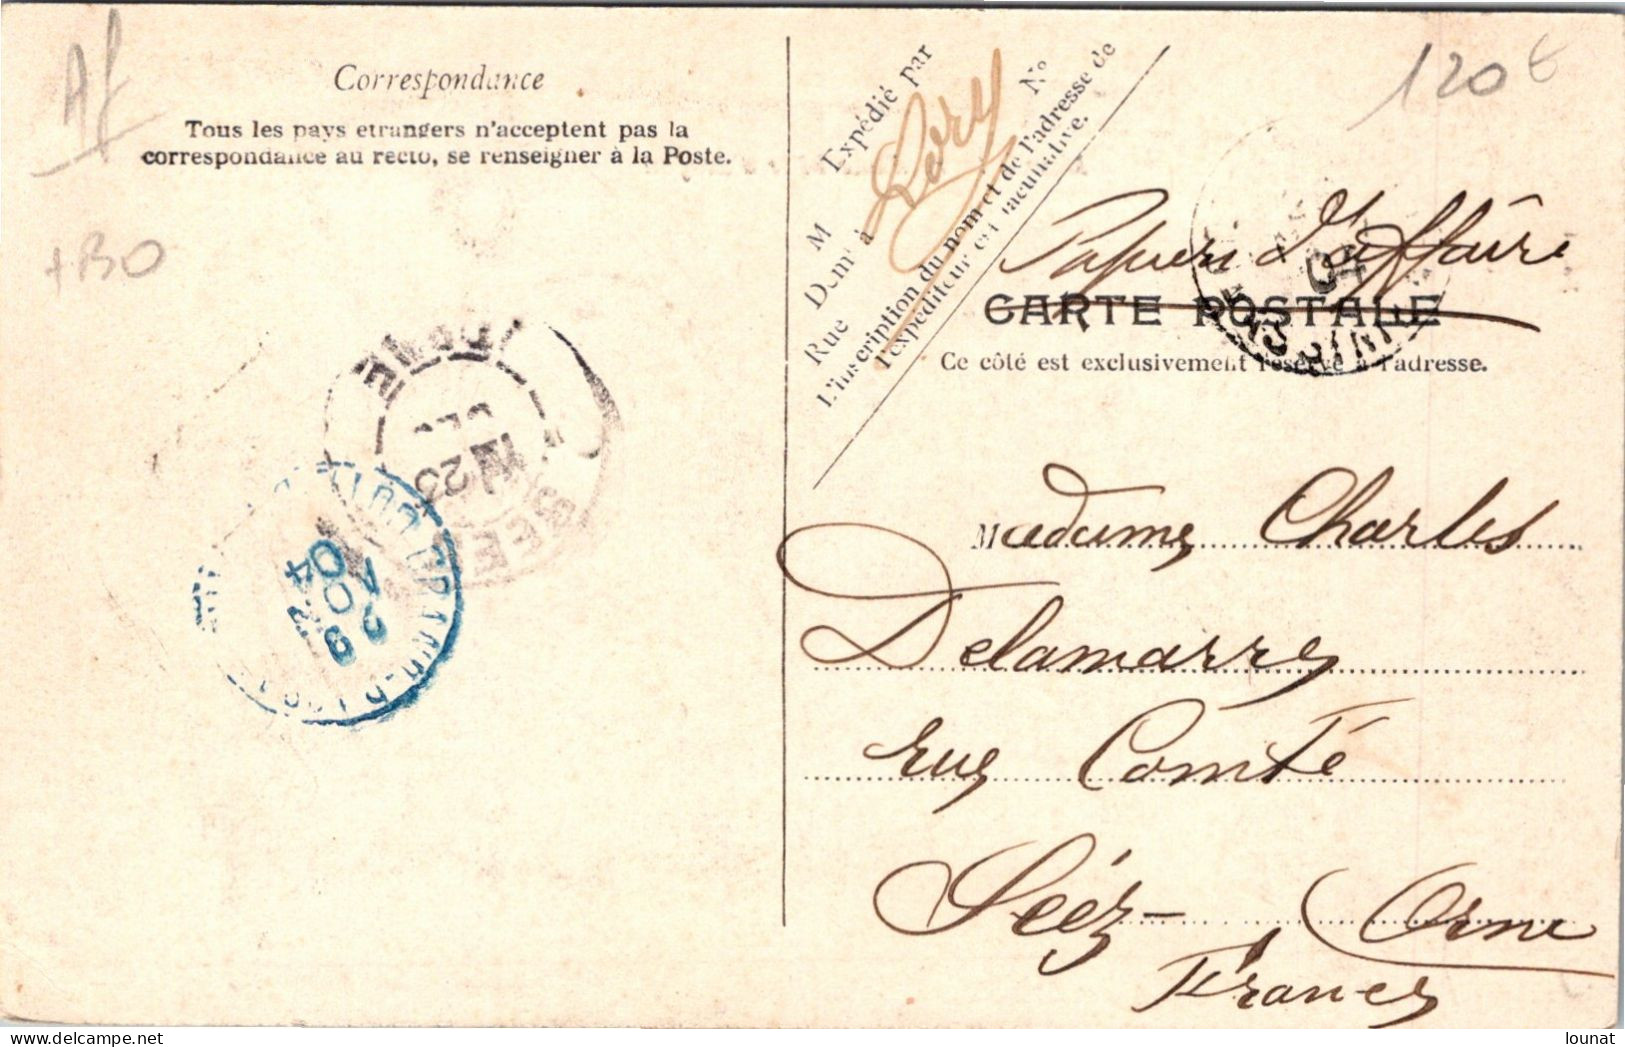 Af
+BO
Correspondance
Tous les pays etrangers n'acceptent pas la
correspondance au recto, se renseigner à la Poste.
Expédié par
M Lery
Demt à
Rue N°
L'inscription du nom et de l'adresse de
l'expéditeur est facultative.
120€
Papiers d'affaire
CARTE POSTALE
Ce côté est exclusivement réservé à l'adresse.
04
GRAND-BASSAM
8
OC
04
SEES
ORNE
23
Madame Charles
Delamarre
rue Comté
Séez- Orne
France
lounat